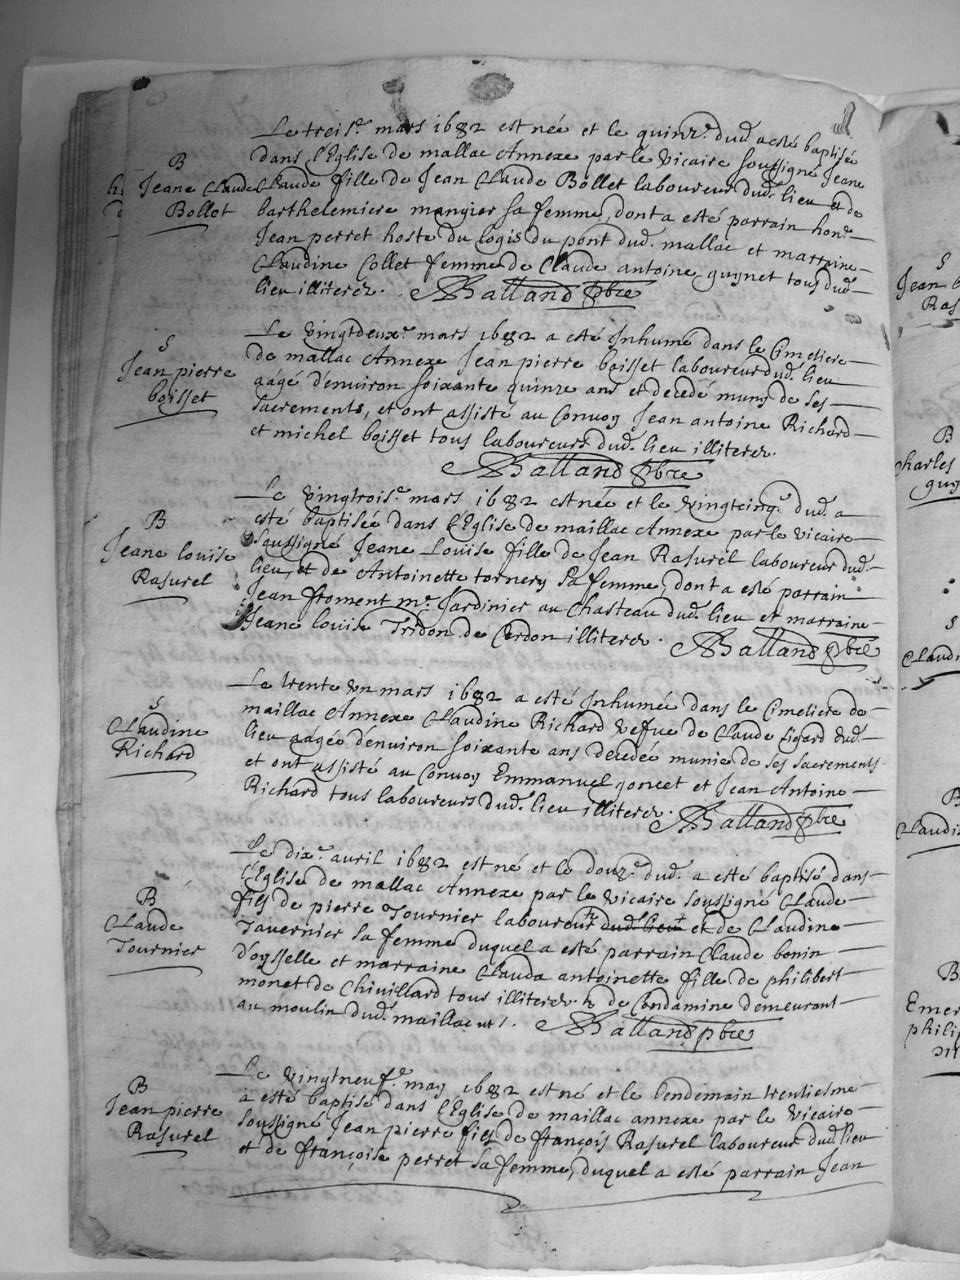 Le treise. mars 1682 est née et le quinze. dud. a esté baptisée
B
Jeane Claude
Bollot
dans l'Eglise de mallac Annexe par le vicaire soussigné Jeane
Claude fille de Jean Claude Bollet laboureur dud. lieu et de
barthelemiere mangier sa femme, dont a esté parrain hon.
Jean perret hoste du logis du pont dud. mallac et marraine
Claudine Collet femme de Claude antoine guynet tous dud.
lieu illiterez. Balland pbre
Le vingtdeux.e mars 1682 a esté Inhumé dans le Cimetiere
S
Jean pierre
boisset
de mallac Annexe Jean pierre boisset laboureur dud. lieu
aagé d'environ soixante quinze ans et decedé muny de ses
sacrements, et ont assisté au Convoy Jean antoine Richard
et michel boisset tous laboureurs dud. lieu illiterez.
Balland pbre
Le vingtrois.e mars 1682 est née et le vingtcinq.e dud. a
B
Jeane louise
Rasurel
esté baptisée dans l'Eglise de maillac Annexe par le vicaire
soussigné Jeane Louise fille de Jean Rasurel laboureur dud.
lieu, et de Antoinette tornery sa femme, dont a esté parrain
Jean froment m.e Jardinier au Chasteau dud. lieu et marraine
Jeane louise Tridon de Cerdon illiterez. Balland pbre
Le trente un mars 1682 a esté Inhumée dans le Cimetiere de
S
Claudine
Richard
maillac Annexe Claudine Richard vefue de Claude figard dud.
lieu aagée d'environ soixante ans decedée munie de ses sacrements
et ont assisté au Convoy Emmanuel goncet et Jean Antoine
Richard tous laboureurs dud. lieu illiterez. Balland pbre
Le dix.e avril 1682 est né et le douz.e dud. a esté baptisé dans
B
Claude
Tournier
l'Eglise de mallac Annexe par le vicaire soussigné Claude
fils de pierre Tournier laboureur dud. lieu et de Claudine
Tavernier sa femme duquel a esté parrain Claude bonin
d'oysselle et marraine Clauda antoinette fille de philibert
monet de Chivillard tous illiterez. de Condamine demeurant
au moulin dud. maillac Balland pbre
Le vingtneuf.e may 1682 est né et le lendemain trentiesme
B
Jean pierre
Rasurel
a esté baptisé dans l'Eglise de maillac annexe par le vicaire
soussigné Jean pierre fils de françois Rasurel laboureur dud. lieu
et de françoise perret sa femme, duquel a esté parrain Jean
S
Jean b
Ras
B
Charles
guy
S
Claud
B
Claudi
B
Emer
philip